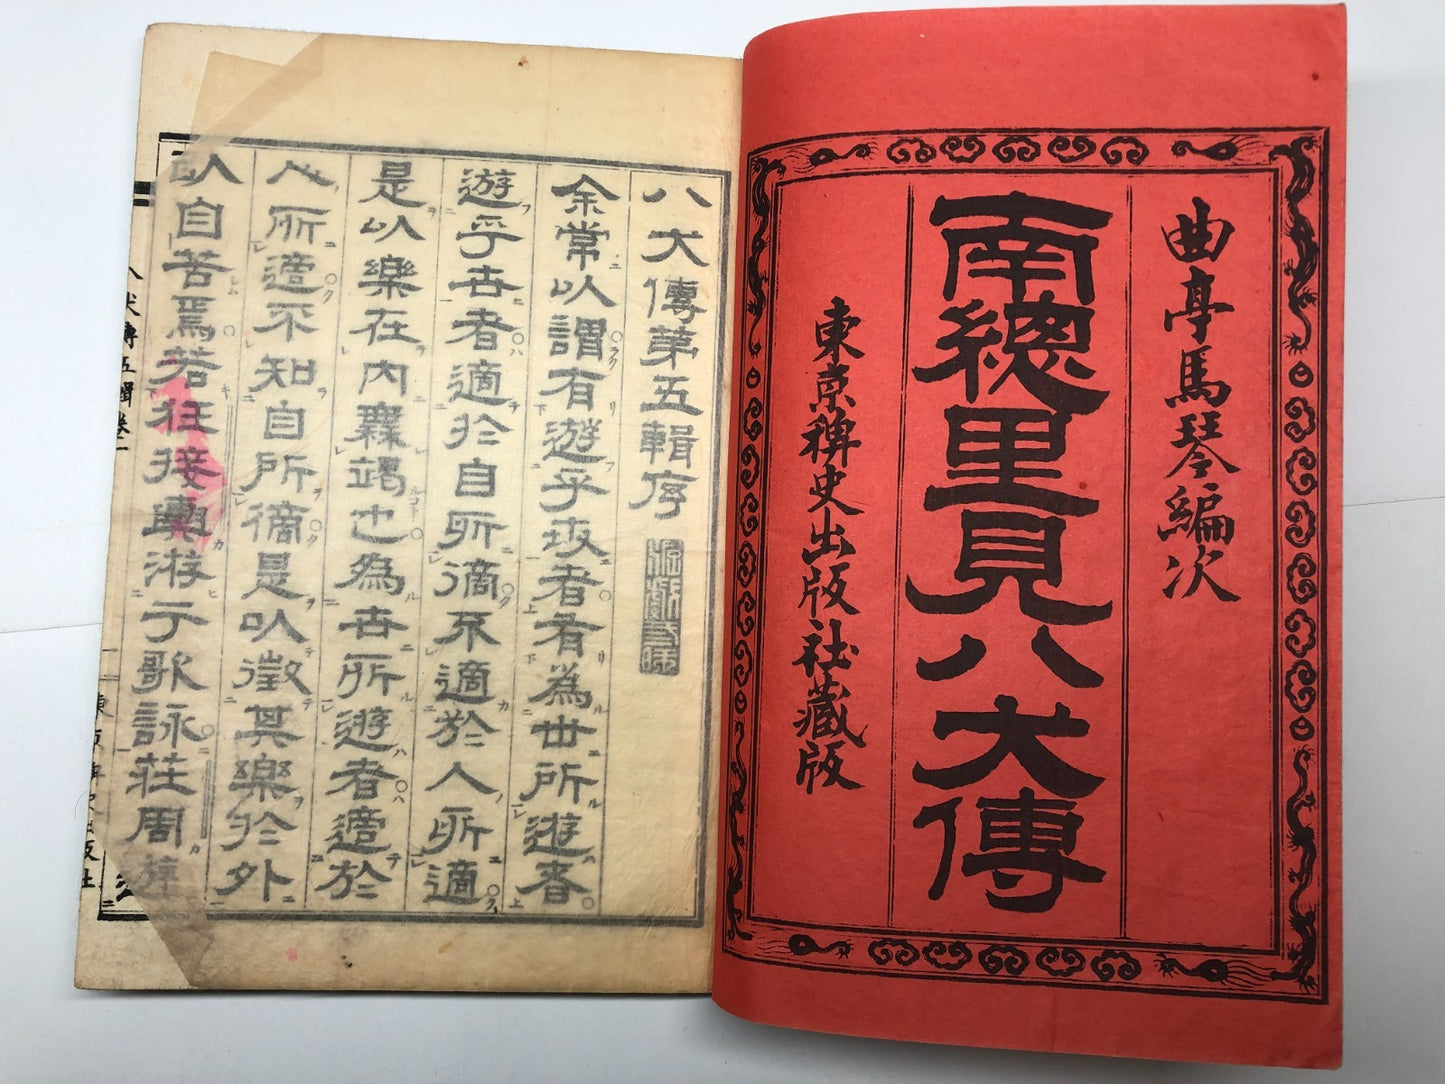 曲亭馬琴編次
南總里見八犬傳
東京稗史出版社藏版
八犬傳第五輯序
余常以謂有遊乎世者若為世所遊者
遊乎世者適於自所適不適於人所適
是以樂在內囊竭也為世所遊者適於
人所適不知自所適是以徵其樂於外
以自苦焉若往接輿游于歌詠莊周
八犬傳五輯卷一
東京稗史出版社